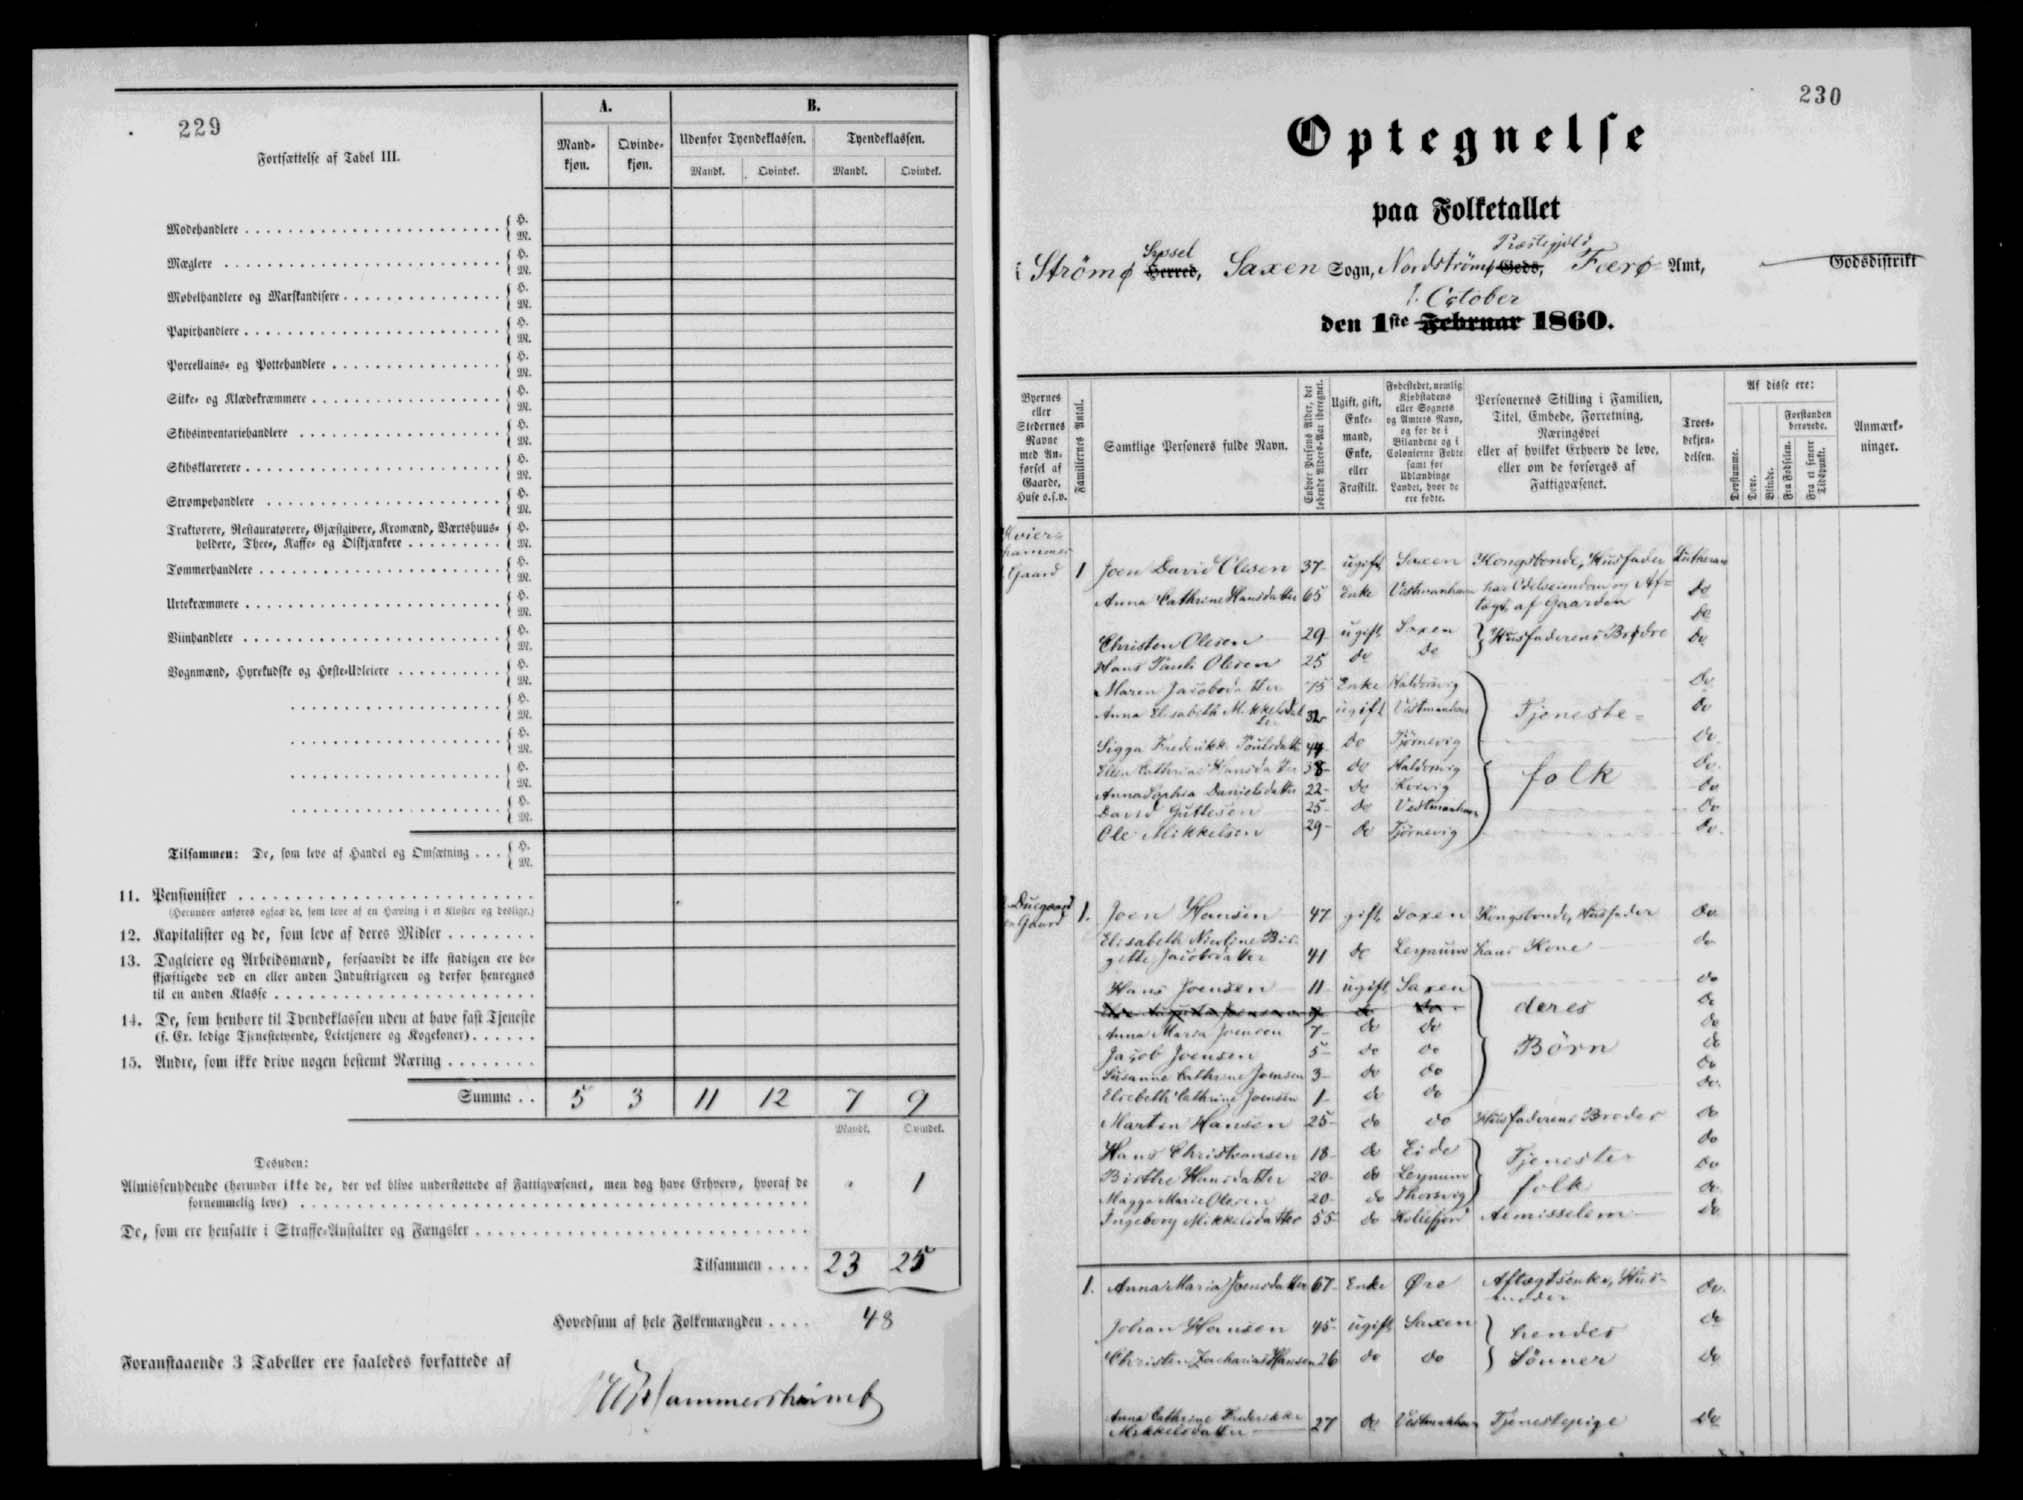 229
Fortsættelse af Tabel III.
A.
B.
Mandkjøn.
Qvindekjøn.
Udenfor Tyendeklassen.
Tyendeklassen.
Mandk.
Qvindek.
Mandk.
Qvindek.
Modehandlere H. M.
Mæglere H. M.
Møbelhandlere og Marskandisere H. M.
Papirhandlere H. M.
Porcellains- og Pottehandlere H. M.
Silke- og Klædekræmmere H. M.
Skibsinventariehandlere H. M.
Skibsklarerere H. M.
Strømpehandlere H. M.
Traktører, Restauratører, Gjæstgivere, Kromænd, Værtshuus- H.
holdere, Thee-, Kaffe- og Ølskjænkere M.
Tømmerhandlere H. M.
Urtekræmmere H. M.
Viinhandlere H. M.
Vognmænd, Hyrekudske og Heste-Udleiere H. M.
H. M.
H. M.
H. M.
H. M.
Tilsammen: De, som leve af Handel og Omsætning H. M.
11. Pensionister
(Herunder anføres ogsaa de, som leve af en Hæving i et Kloster og deslige.)
12. Kapitalister og de, som leve af deres Midler
13. Dagleiere og Arbeidsmænd, forsaavidt de ikke stadigen ere be-
skjæftigede ved en eller anden Industrigreen og derfor henregnes
til en anden Klasse
14. De, som henhøre til Tyendeklassen uden at have fast Tjeneste
(f. Ex. ledige Tjenestetyende, Leietjenere og Kogekoner)
15. Andre, som ikke drive nogen bestemt Næring
Summa . . 5 3 11 12 7 9
Mandk. Qvindek.
Desuden:
Almissenydende (herunder ikke de, der vel blive understøttede af Fattigvæsenet, men dog have Erhverv, hvoraf de
fornemmelig leve) " 1
De, som ere hensatte i Straffe-Anstalter og Fængsler
Tilsammen . . . . 23 25
Hovedsum af hele Folkemængden . . . . 48
Foranstaaende 3 Tabeller ere saaledes forfattede af
Hammershaimb
230
Optegnelse
paa Folketallet
Syssel
Præstegjeld
i Strömø Herred, Saxen Sogn, Nordströmø Gods, Færø Amt, Godsdistrikt
1. October
den 1ste Februar 1860.
Byernes
eller
Stedernes
Navne
med An-
førsel af
Gaarde,
Huse o.s.v.
Familiernes Antal.
Samtlige Personers fulde Navn.
Enhver Persons Alder, det
løbende Alders-Aar iberegnet.
Ugift, gift,
Enke-
mand,
Enke,
eller
Fraskilt.
Fødestedet, nemlig
Kjøbstadens
eller Sognets
og Amtets Navn,
og for de i
Bilandene og i
Colonierne Fødte
samt for
Udlændinge
Landet, hvor de
ere fødte.
Personernes Stilling i Familien,
Titel, Embede, Forretning,
Næringsvei
eller af hvilket Erhverv de leve,
eller om de forsørges af
Fattigvæsenet.
Troes-
bekjen-
delsen.
Af disse ere:
Døvstumme.
Døve.
Blinde.
Forstanden
berøvede.
Fra Fødselen.
Fra et senere
Tidspunkt.
Anmærk-
ninger.
Gaard 1 Joen David Olesen 37 ugift Saxen Kongsbonde, Husfader Lutheran
Anna Cathrine Hansdatter 65 Enke Vestmanhavn har Odelseiendom og Af-
tægt af Gaarden do
do
Christen Olesen 29 ugift Saxen } Husfaderens Brødre do
Hans Pauli Olesen 25 do do
Maren Jacobsdatter 75 Enke Haldorvig do
Anna Elisabeth Mikkelsdat
ter 32 ugift Vestmanhavn Tjeneste- do
Sigga Frederikke Poulsdatt 44 do Tjørnevig do
Ellen Cathrine Hansdatter 38 do Haldorvig folk do
Anna Sophia Danielsdatter 22 do Kvivig do
David Guttesen 25 do Vestmanhavn do
Ole Mikkelsen 29 do Tjørnevig do
Duegaard
Gaard 1. Joen Hansen 47 gift Saxen Kongsbonde, Husfader do
Elisabeth Nicoline Bir-
gitte Jacobsdatter 41 do Leynum hans Kone do
Hans Joensen 11 ugift Saxen do
do do deres do
Anna Maria Joensen 7 do do do
Jacob Joensen 5 do do Börn do
Susanne Cathrine Joensen 3 do do do
Elsebeth Cathrine Joensen 1 do do do
Martin Hansen 25 do do Husfaderens Broder do
Hans Christiansen 18 do Eide Tjeneste- do
Birthe Hansdatter 20 do Leynum do
Magga Marie Olesen 20 do Thorsvig folk do
Ingeborg Mikkelsdatter 55 do Kollefjord Almisselem do
1. Anna Maria Joensdatter 67 Enke Øre Aftægtsenke, Hus-
moder do
Johan Hansen 45 ugift Saxen } hendes do
Christen Zacharias Hansen 26 do do } Sönner do
Anna Cathrine Frederikke
Mikkelsdatter 27 do Vestmanhavn Tjenestepige do